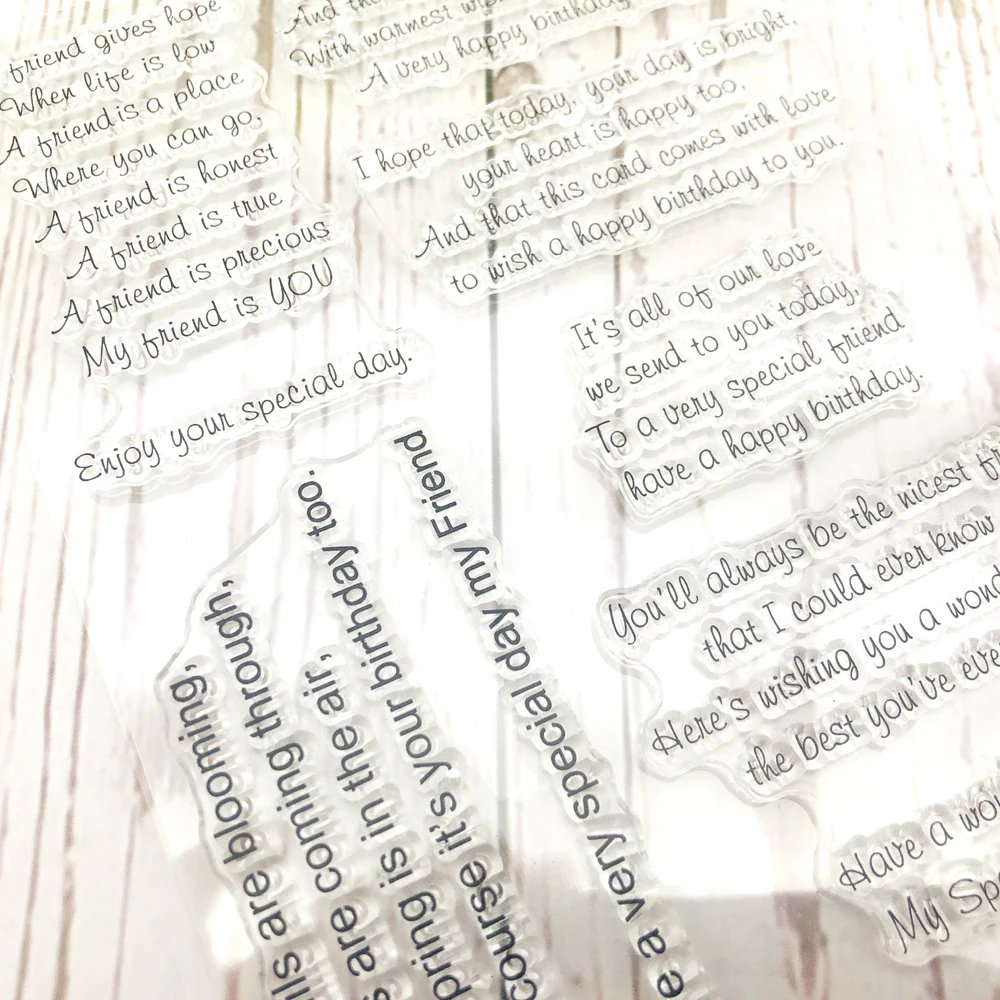 friend gives hope
When life is low
A friend is a place
Where you can go,
A friend is honest
A friend is true
A friend is precious
My friend is YOU
And
With warmest
A very happy birthday
I hope that today, your day is bright,
your heart is happy too,
And that this card comes with love
to wish a happy birthday to you.
It's all of our love
we send to you today,
To a very special friend
have a happy birthday.
Enjoy your special day.
are blooming,
are coming through,
is in the air,
course it's your birthday too.
a very special day my Friend
You'll always be the nicest
that I could ever know
Here's wishing you a
the best you've
Have a
My